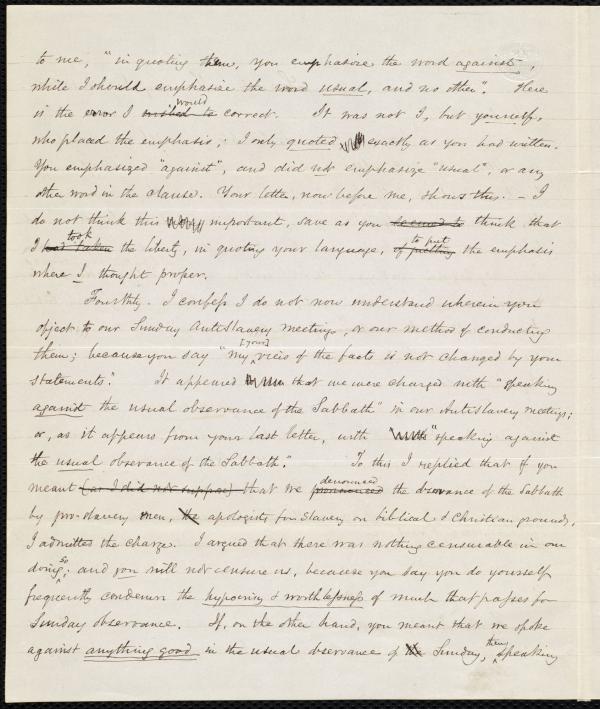 to me, "in quoting them, you emphasize the word against,
while I should emphasize the word usual, and no other". Here
is the error I wished to would correct. It was not I, but yourself,
who placed the emphasis; I only quoted exactly as you had written.
You emphasized "against", and did not emphasize "usual", or any
other word in the clause. Your letter, now before me, shows this. – I
do not think this important, save as you seemed to think that
I had taken took the liberty, in quoting your language, of putting to put the emphasis
where I thought proper.
Fourthly. I confess I do not now understand wherein you
object to our Sunday AntiSlavery meetings, or our method of conducting
them; because you say "my [your] view of the facts is not changed by your
statements." It appeared that we were charged with "speaking
against the usual observance of the Sabbath" in our AntiSlavery meetings;
or, as it appears from your last letter, with "speaking against
the usual observance of the Sabbath." To this I replied that if you
meant (as I did not suppose) that we pronounced denounced the observance of the Sabbath
by pro-slavery men, the apologists for slavery on biblical & Christian grounds,
I admitted the charge. I argued that there was nothing censurable in our
doing so; and you will not censure us, because you say you do yourself
frequently condemn the hypocrisy & worthlessness of much that passes for
Sunday observance. If, on the other hand, you meant that we spoke
against anything good in the usual observance of the Sunday, then speaking